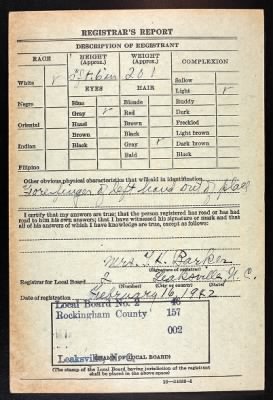 REGISTRAR'S REPORT
DESCRIPTION OF REGISTRANT
RACE HEIGHT (Approx.) WEIGHT (Approx.) COMPLEXION
201
White Sallow
EYES HAIR Light
Negro Blue Blonde Ruddy
Gray Red Dark
Oriental Hazel Brown Freckled
Brown Black Light brown
Indian Black Gray Dark brown
Bald Black
Filipino
Other obvious physical characteristics that will aid in identification
Fore finger of left hand out of place
I certify that my answers are true; that the person registered has read or has had
read to him his own answers; that I have witnessed his signature or mark and that
all of his answers of which I have knowledge are true, except as follows:
Mrs. T. H. Barker
(Signature of registrar)
Registrar for Local Board 2 Leaksville, N. C.
(Number) (City or county) (State)
Date of registration February 16, 1942
Local Board No. 2 46
Rockingham County 157
002
Leaksville,
(STAMP OF LOCAL BOARD)
(The stamp of the Local Board having jurisdiction of the registrant
shall be placed in the above space)